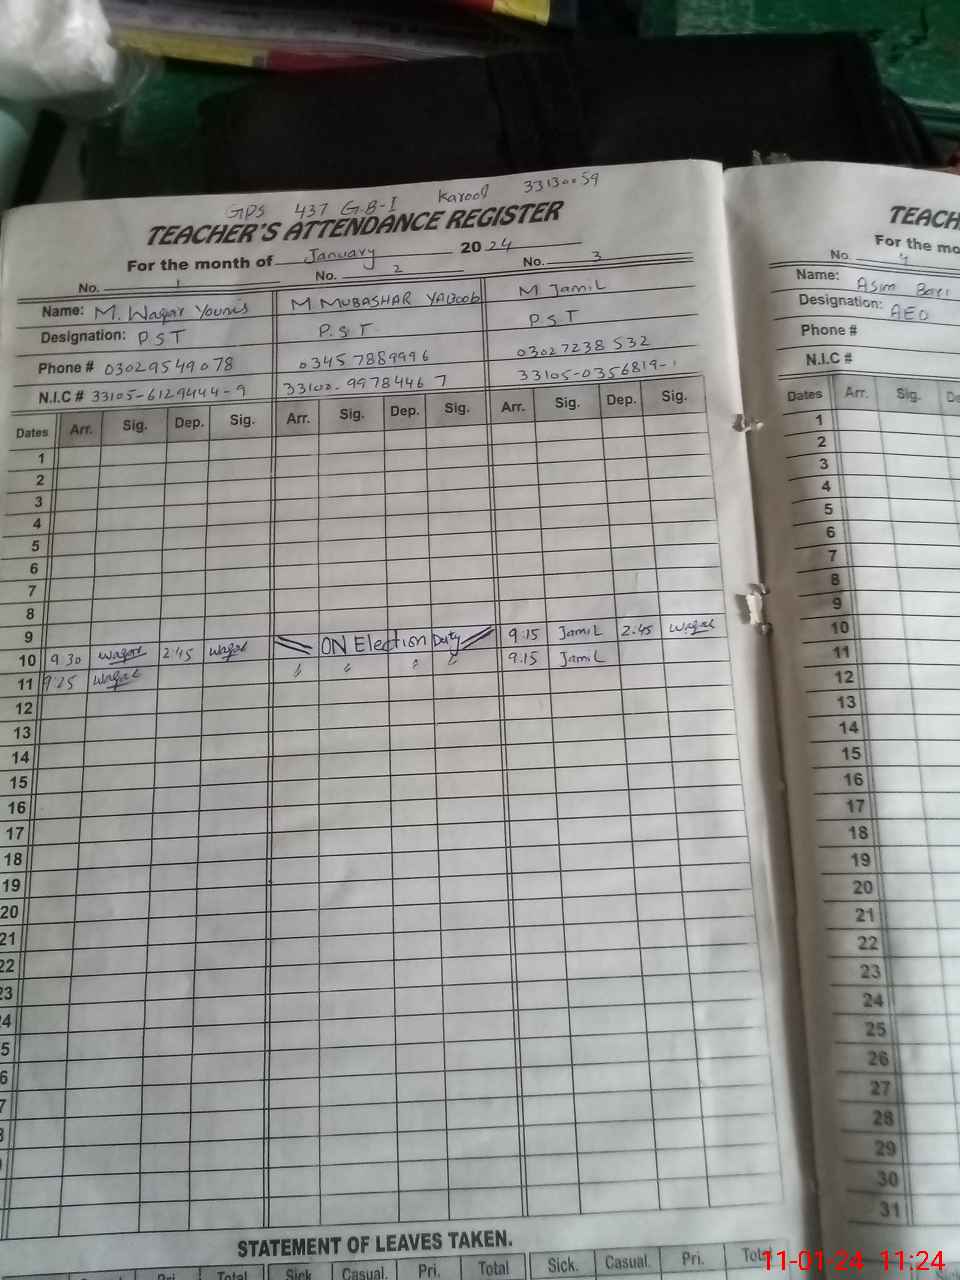 GPS 437 G.B-I Karool 33130059
TEACHER'S ATTENDANCE REGISTER
For the month of January 2024
No. 1 No. 2 No. 3
Name: M. Waqar Younis M. MUBASHAR YAQOOB M. Jamil
Designation: P S T P. S. T P S T
Phone # 03029549078 03457889996 03027238532
N.I.C # 33105-6129444-9 33100-99784467 33105-0356819-1
Dates Arr. Sig. Dep. Sig. Arr. Sig. Dep. Sig. Arr. Sig. Dep. Sig.
1
2
3
4
5
6
7
8
9
10 9 30 Waqar 2:45 Waqar ON Election Duty 9:15 Jamil 2:45
11 Waqar 9:15 Jamil
12
13
14
15
16
17
18
19
20
21
22
23
4
5
6
7
STATEMENT OF LEAVES TAKEN.
Casual. Pri. Total Sick Casual. Pri. Total Sick. Casual. Pri. Total
TEACH
For the mo
No. 4
Name: Asim
Designation: AEO
Phone #
N.I.C #
Dates Arr. Sig. De
1
2
3
4
5
6
7
8
9
10
11
12
13
14
15
16
17
18
19
20
21
22
23
24
25
26
27
28
29
30
31
11-01-24 11:24